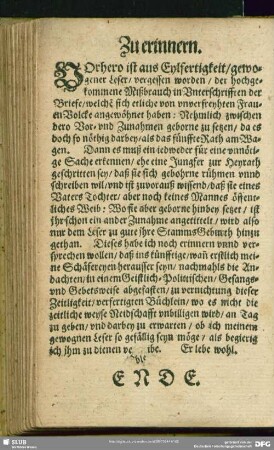 Zu erinnern.
VOrhero ist aus Eylfertigkeit / gewo-
gener Leser / vergessen worden / der hochge-
kommene Mißbrauch in Vnterschrifften der
Briefe / welche sich etliche von vnverfreyhten Frau-
en Volcke angewöhnet haben: Nehmlich zwischen
dero Vor- vnd Zunahmen geborne zu setzen / da es
doch so nöthig darbey / als das fünffte Rath am Wa-
gen. Dann es muß ein iedweder für eine vnnöti-
ge Sache erkennen / ehe eine Jungfer zur Heyrath
geschritten sey / daß sie sich gebohrne rühmen vnnd
schreiben will / vnd ist zuvorauß wissend / daß sie eines
Vaters Tochter / aber noch keines Mannes öffent-
liches Weib: Wo sie aber geborne hinbey setzet / ist
ihr schon ein ander Zunahme angetittelt / wird also
nur dem Leser zu gute ihre Stamms Geburth hinzu
gethan. Dieses habe ich noch erinnern vnnd ver-
sprechen wollen / daß ins künfftige / wañ erstlich mei-
ne Schäfereyen herausser seyn / nachmahls die An-
dachten / in einem Geistlich-Politischen / Gesangs-
vnd Gebetsweise abgefasten / zu vernuchrung dieser
Zeitligkeit / verfertigten Büchlein / wo es nicht die
zeitliche weyse Neidschafft vnbilligen wird / an Tag
zu geben / vnd darbey zu erwarten / ob ich meinem
gewognen Leser so gefällig seyn möge / als begierig
ich ihm zu dienen Er lebe wohl.
ENDE.
SLUB
DFG